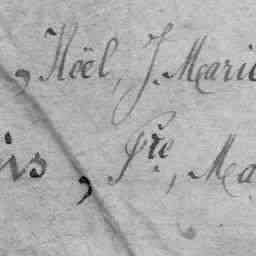 , Noël, J. Marie
is, Pre, Ma